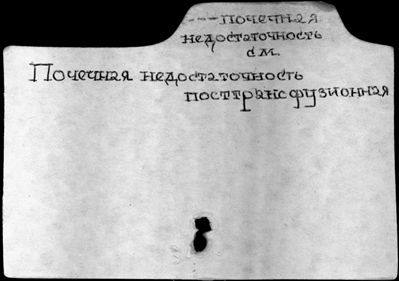 ---почечная
недостаточность
см.
Почечная недостаточность
посттрансфузионная